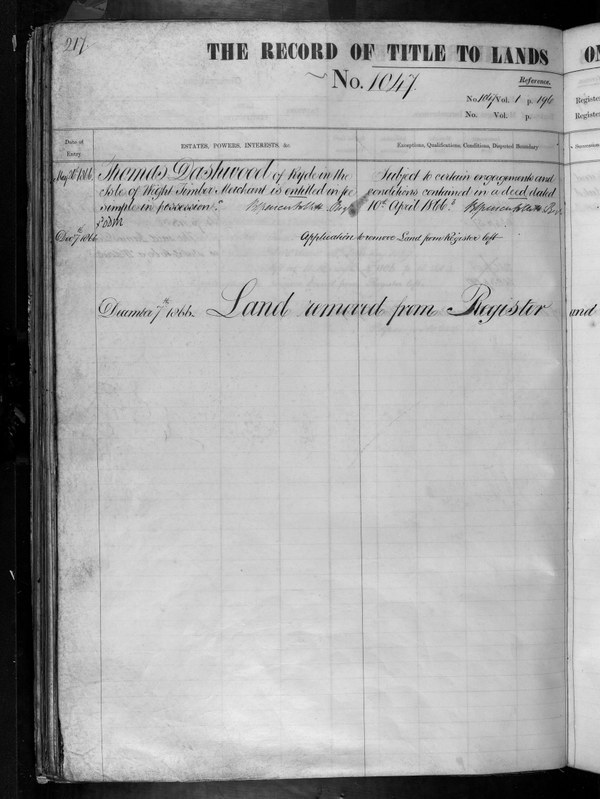 217
THE RECORD OF TITLE TO LANDS
No. 1047.
Reference.
No. 1047 Vol. 1 p. 196
No. Vol. p.
Date of
Entry
ESTATES, POWERS, INTERESTS, &c
Exceptions, Qualifications, Conditions, Disputed Boundary
May 26th 1866
Thomas Dashwood of Ryde in the
Isle of Wight Timber Merchant is entitled in fee
simple in possession.
Subject to certain engagements and
conditions contained in a deed dated
10th April 1866.
Decr 7th 1866
Application to remove Land from Register left
December 7th 1866. Land removed from Register
ON
Register
Register
and